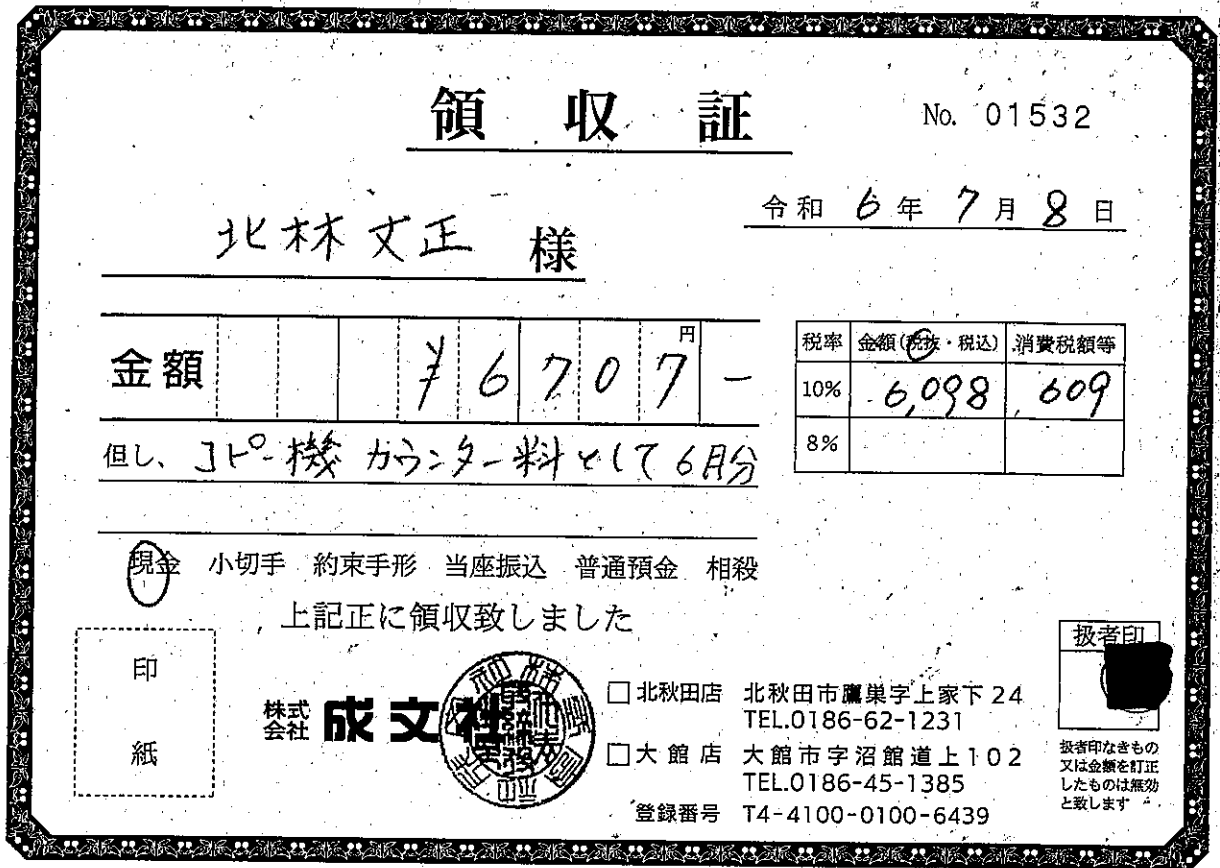 領収証
No. 01532
令和 6 年 7 月 8 日
北林丈正 様
金額 ¥6707- 円
税率 金額(税抜・税込) 消費税額等
10% 6,098 609
8%
但し、コピー機 カウンター料として 6月分
現金 小切手 約束手形 当座振込 普通預金 相殺
上記正に領収致しました
印紙
株式会社 成文社
□北秋田店 北秋田市鷹巣字上家下24
TEL.0186-62-1231
□大館店 大館市字沼館道上102
TEL.0186-45-1385
登録番号 T4-4100-0100-6439
扱者印
扱者印なきもの
又は金額を訂正
したものは無効
と致します